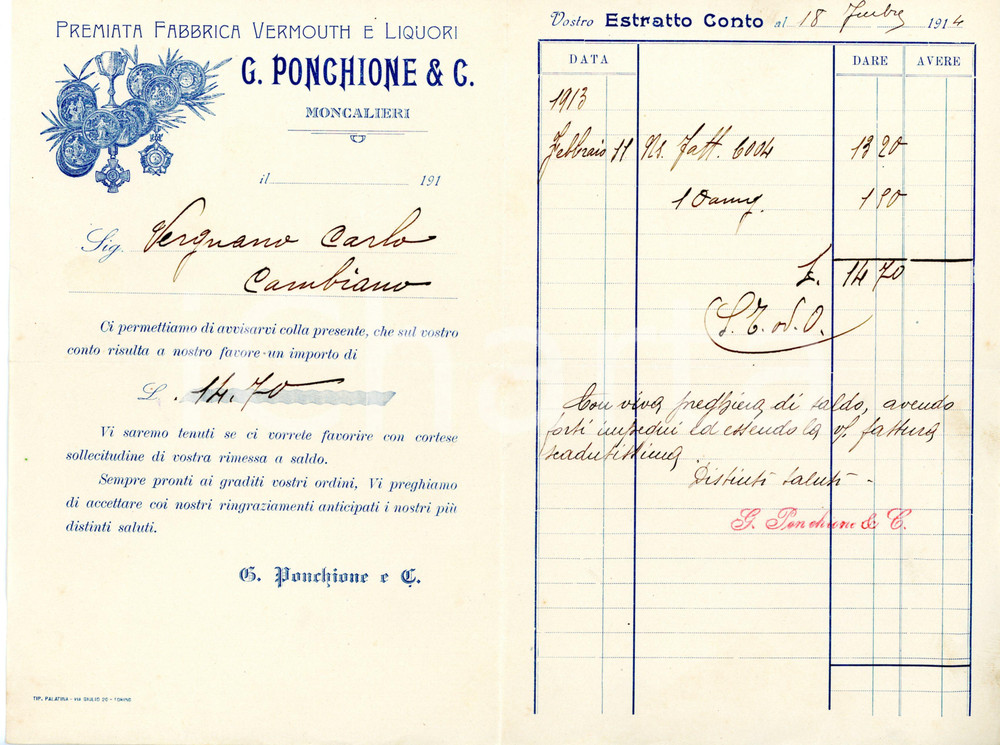 PREMIATA FABBRICA VERMOUTH E LIQUORI
G. PONCHIONE & C.
MONCALIERI
il 191
Sig. Vergnano Carlo
Cambiano
Ci permettiamo di avvisarvi colla presente, che sul vostro
conto risulta a nostro favore un importo di
L. 14.70
Vi saremo tenuti se ci vorrete favorire con cortese
sollecitudine di vostra rimessa a saldo.
Sempre pronti ai graditi vostri ordini, Vi preghiamo
di accettare coi nostri ringraziamenti anticipati i nostri più
distinti saluti.
G. Ponchione e C.
TIP. PALATINA - VIA GIULIO 20 - TORINO
Vostro Estratto Conto al 18 1914
DATA DARE AVERE
1913
Febbraio 11 Ns. fatt. 6004 13 20
1 Damig. 1 50
L. 14 70
S. E. od O.
Con viva preghiera di saldo, avendo
forti impegni ed essendo la v/ fattura
scadutissima.
Distinti saluti -
G. Ponchione & C.